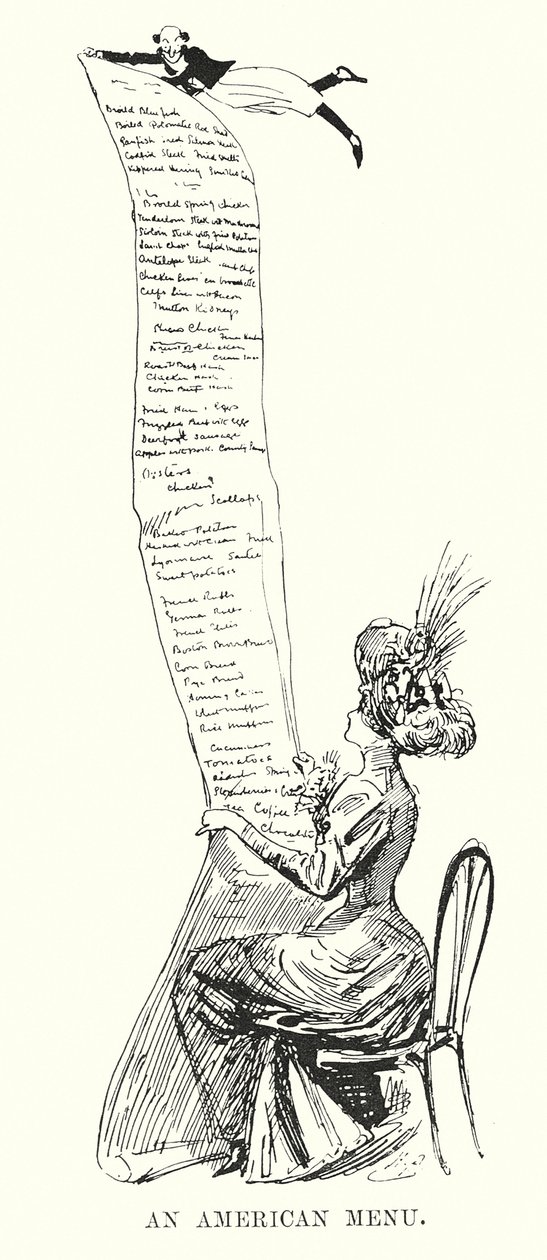 Broild Blue fish
Boiled Red Shad
Panfish Salmon
Codfish Steak Fried Smelts
Kippered Herring
Broild Spring Chicken
Tenderloin Steak wt Mushrooms
Sirloin Steak with Fried Potatoes
Lamb Chops
Antelope Steak and Chips
Chicken livers en brochette
Calfs liver wt Bacon
Mutton Kidneys
Chicken
of Chicken
Roast Beef Hash
Chicken Hash
Corn Beef Hash
Fried Ham & Eggs
Frizzled Beef with Eggs
Deerfoot sausage
apples wt pork. Country
Oysters
Chicken
Scollops
Baked Potatoes
wt Cream Fried
Lyonnaise Sautee
Sweet potatoes
French Rolls
Vienna Rolls
French
Boston Brown Bread
Corn Bread
Rye Bread
Hominy Cakes
Wheat muffins
Rice Muffins
Cucumbers
Tomatoes
Radish Spring
Strawberries & Cream
Tea Coffee
Chocolate
AN AMERICAN MENU.